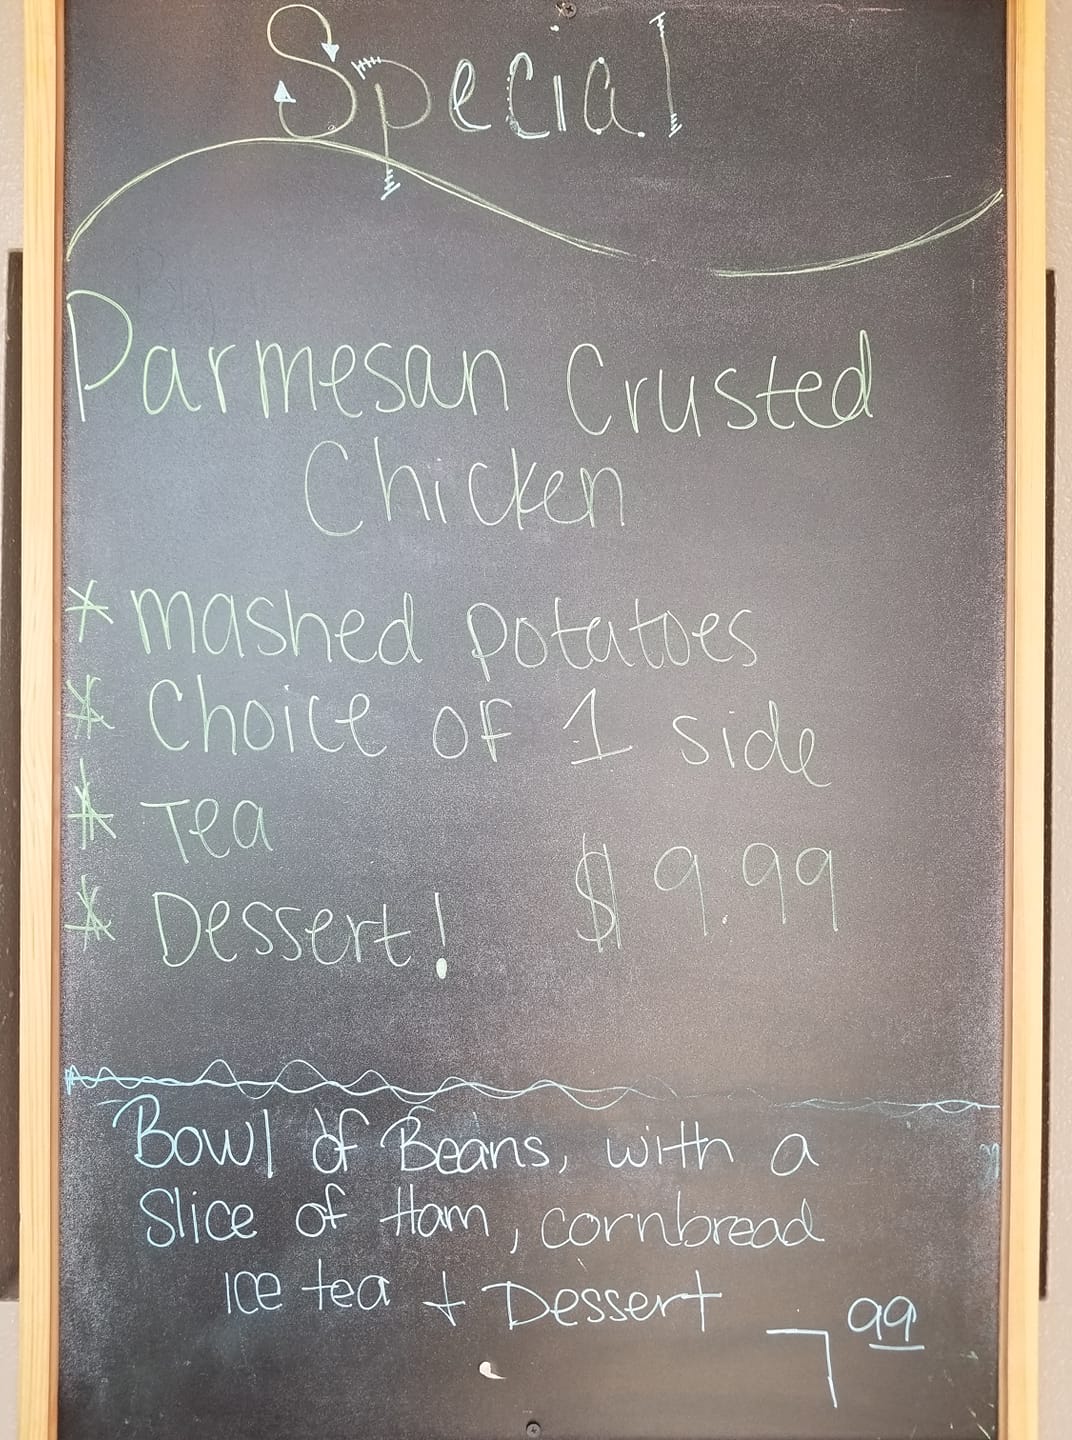 Special
Parmesan Crusted
Chicken
* mashed potatoes
* Choice of 1 side
* Tea
* Dessert! $9.99
Bowl of Beans, with a
Slice of Ham, cornbread
Ice tea + Dessert
7 99